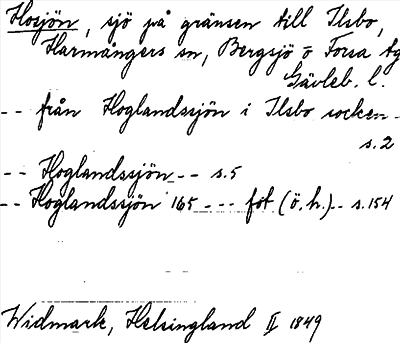 Hosjön, sjö på gränsen till Ilsbo,
Harmångers sn, Bergsjö o Forsa tg
Gävleb. l.
-- från Hoglandssjön i Ilsbo socken -
s. 2
-- Hoglandssjön -- s. 5
-- Hoglandssjön 165 --- fot (ö.h.)-- s. 154
Widmark, Helsingland II 1849